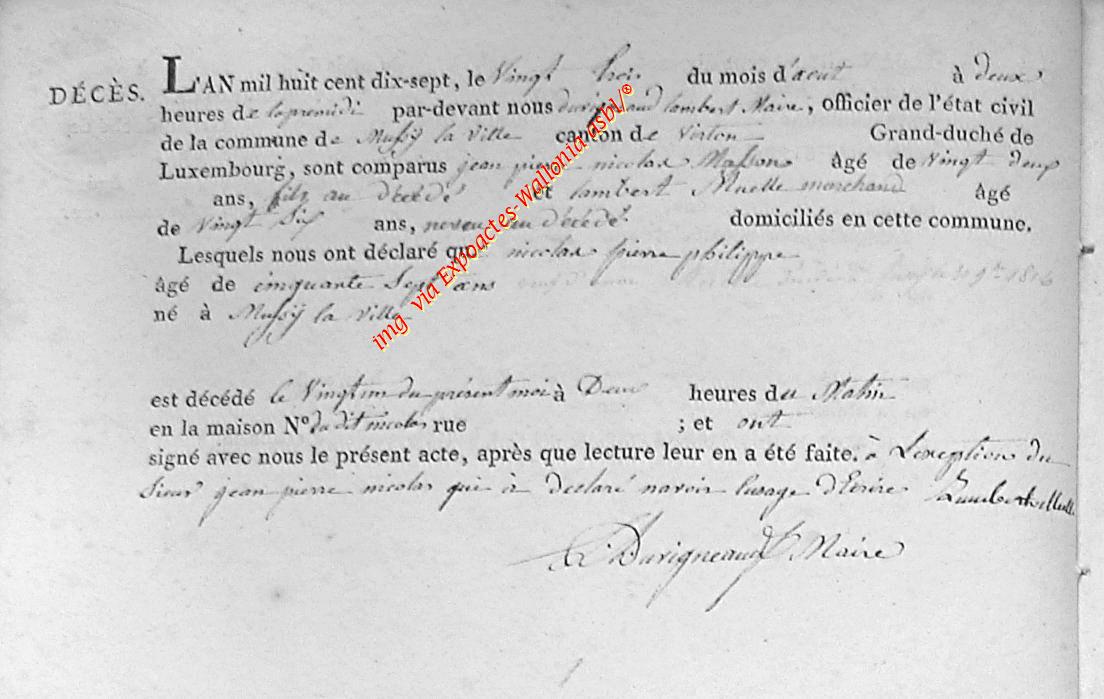 DÉCÈS. L'AN mil huit cent dix-sept, le Vingt trois du mois d'aout à deux
heures de lapremidi par-devant nous duvigneaud lambert Maire, officier de l'état civil
de la commune de Mussy la Ville canton de Virton Grand-duché de
Luxembourg, sont comparus jean pierre nicolas Masson âgé de Vingt deux
ans, fils au décédé et lambert Muelle marchand âgé
de Vingt Six ans, neveu au décédé domiciliés en cette commune.
Lesquels nous ont déclaré que nicolas pierre philippe
âgé de cinquante Sept ans 1816
né à Mussy la Ville
est décédé le Vingt un du présent moi à Deux heures du Matin
en la maison N° du dit nicolas rue ; et ont
signé avec nous le présent acte, après que lecture leur en a été faite. à L'exception du
Sieur jean pierre nicolas qui à declaré navoir lusage d'Ecrire Lambert Muelle
Duvigneaud Maire
img via Expoactes-Wallonia asbl/®